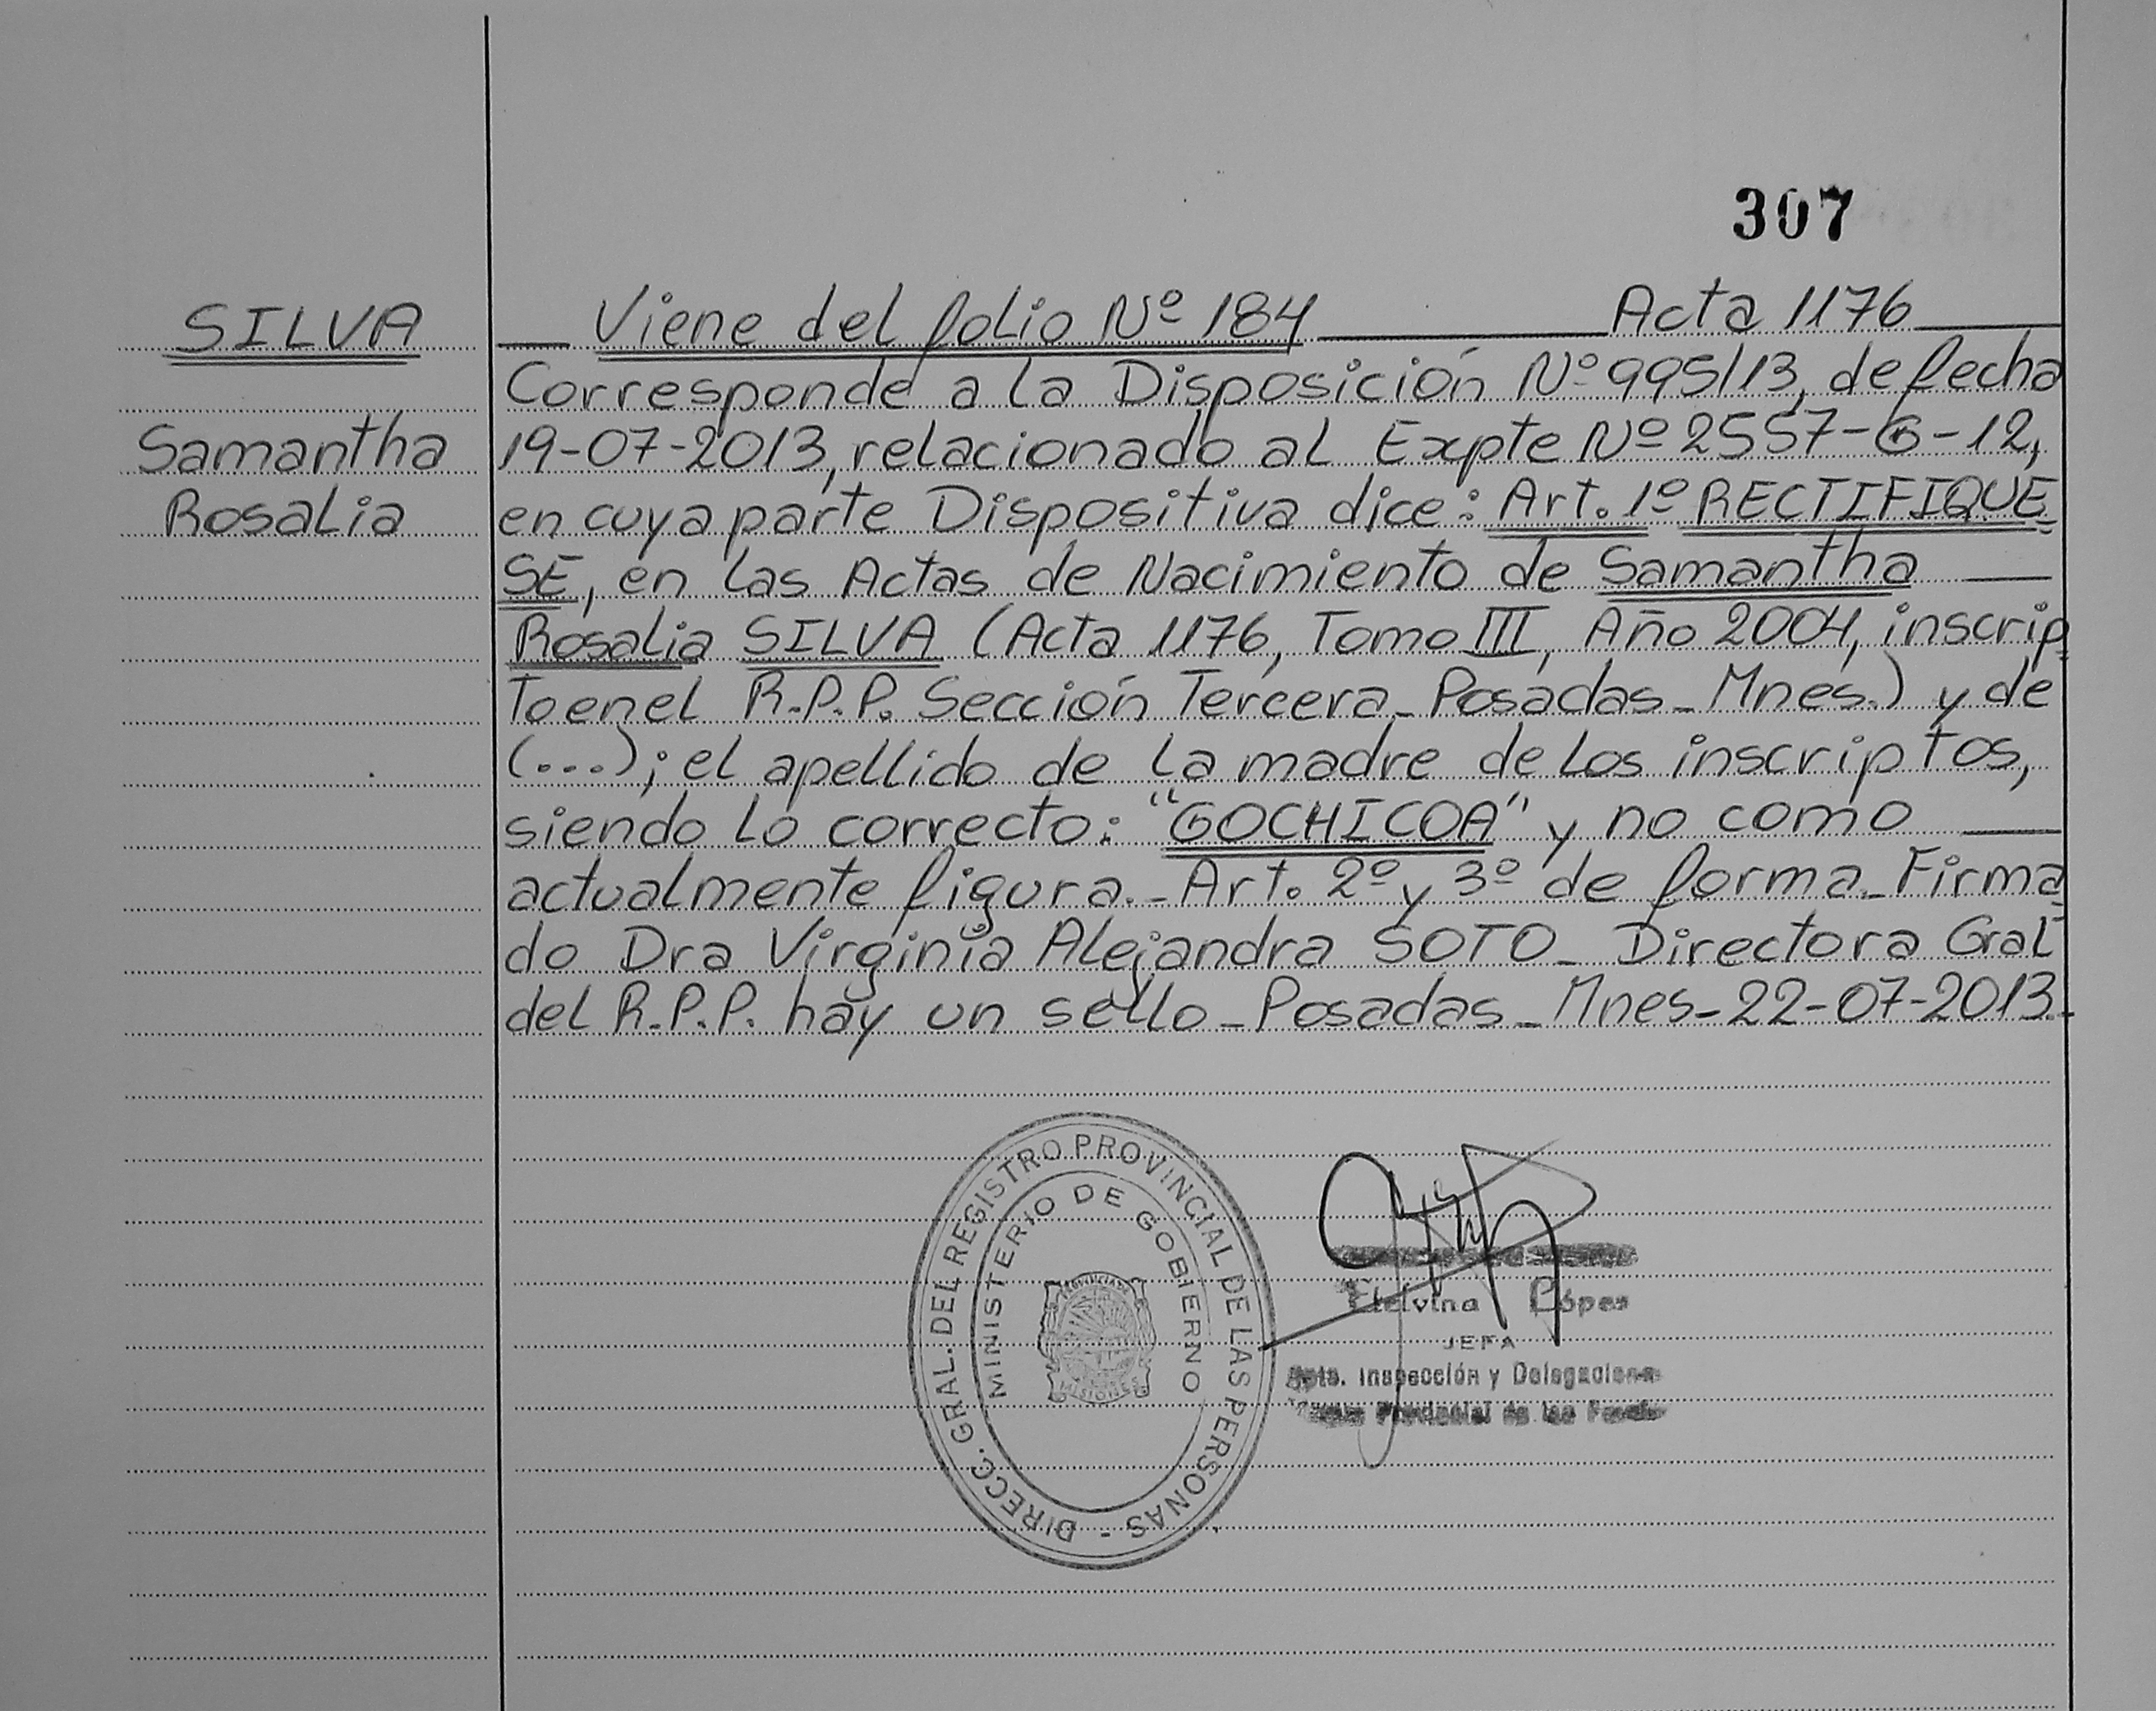 307
SILVA
Samantha
Rosalia
Viene del folio Nº 184 Acta 1176
Corresponde a la Disposición Nº 995/13, de fecha
19-07-2013, relacionado al Expte Nº 2557-G-12,
en cuya parte Dispositiva dice: Art. 1º RECTIFIQUE=
SE, en las Actas de Nacimiento de Samantha
Rosalia SILVA (Acta 1176, Tomo III, Año 2004, inscrip=
to en el R.P.P. Sección Tercera_Posadas_Mnes.) y de
(...); el apellido de la madre de los inscriptos,
siendo lo correcto: "GOCHICOA" y no como
actualmente figura._Art. 2º y 3º de forma_Firma=
do Dra Virginia Alejandra SOTO_Directora Gral
del R.P.P. hay un sello_Posadas_Mnes-22-07-2013.
DIRECC. GRAL. DEL REGISTRO PROVINCIAL DE LAS PERSONAS -
MINISTERIO DE GOBIERNO
MISIONES
López
JEFA
Inspección y Delegaciones
Provincial de las